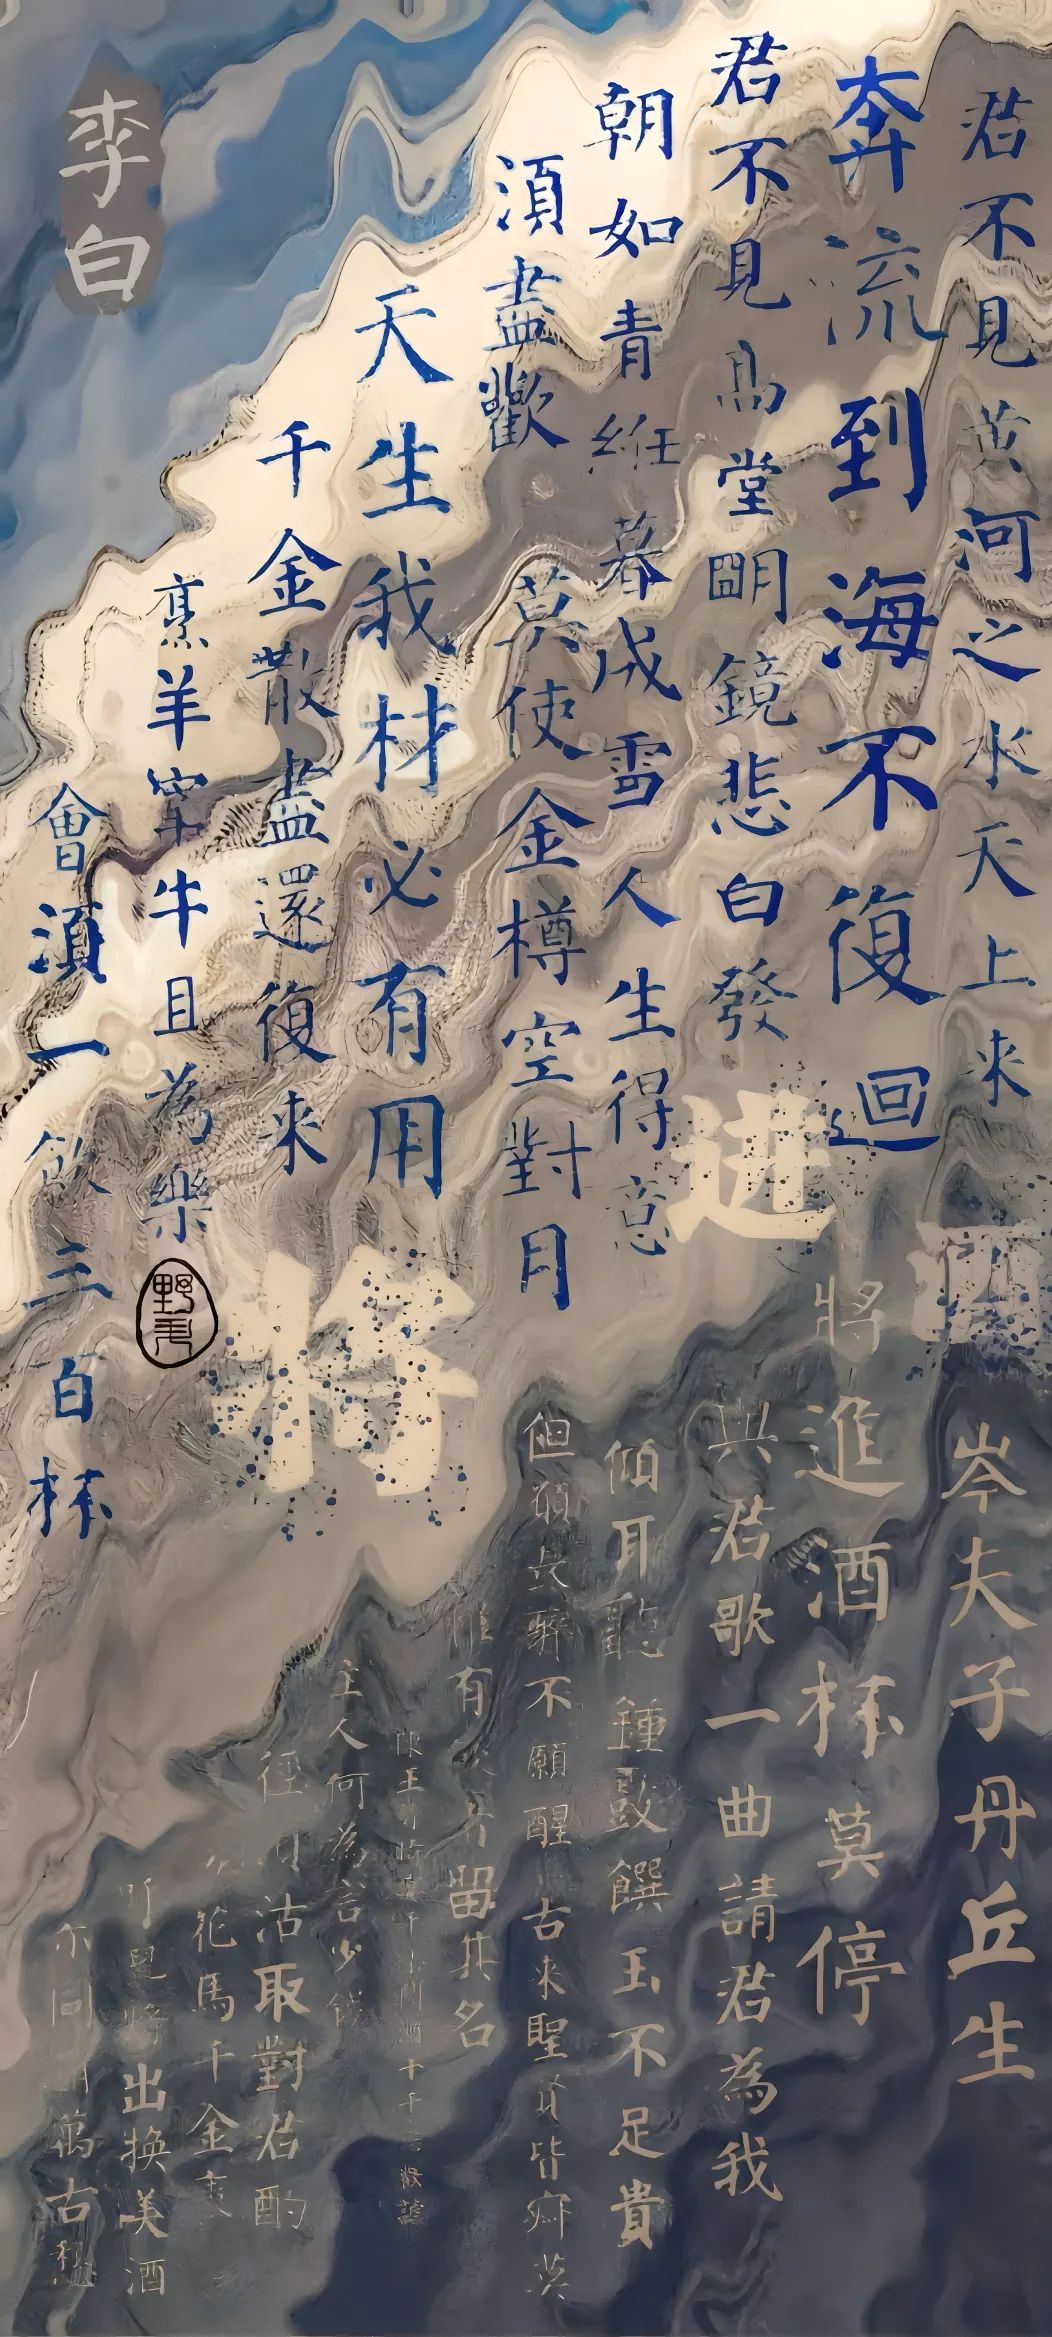 君不見黄河之水天上来
奔流到海不復迴
君不見高堂朙鏡悲白發
朝如青絲暮成雪人生得意
須盡歡莫使金樽空對月
天生我材必有用
千金散盡還復来
烹羊宰牛且為樂
會須一飲三百杯
李白
将进酒
岑夫子丹丘生
將進酒杯莫停
與君歌一曲請君為我
傾耳聽鍾鼓饌玉不足貴
但願長醉不願醒古来聖賢皆寂莫
惟有飲者留其名
陳王昔時宴平樂斗酒十千恣歡謔
主人何為言少錢
徑須沽取對君酌
五花馬千金裘
呼兒將出換美酒
尔同銷萬古愁